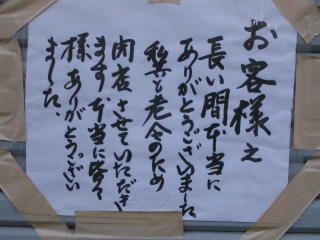 お客様え
長い間本当に
ありがとうございました
私共老令のため
閉店させていただき
ます本当に皆々
様ありがとうござい
ました、